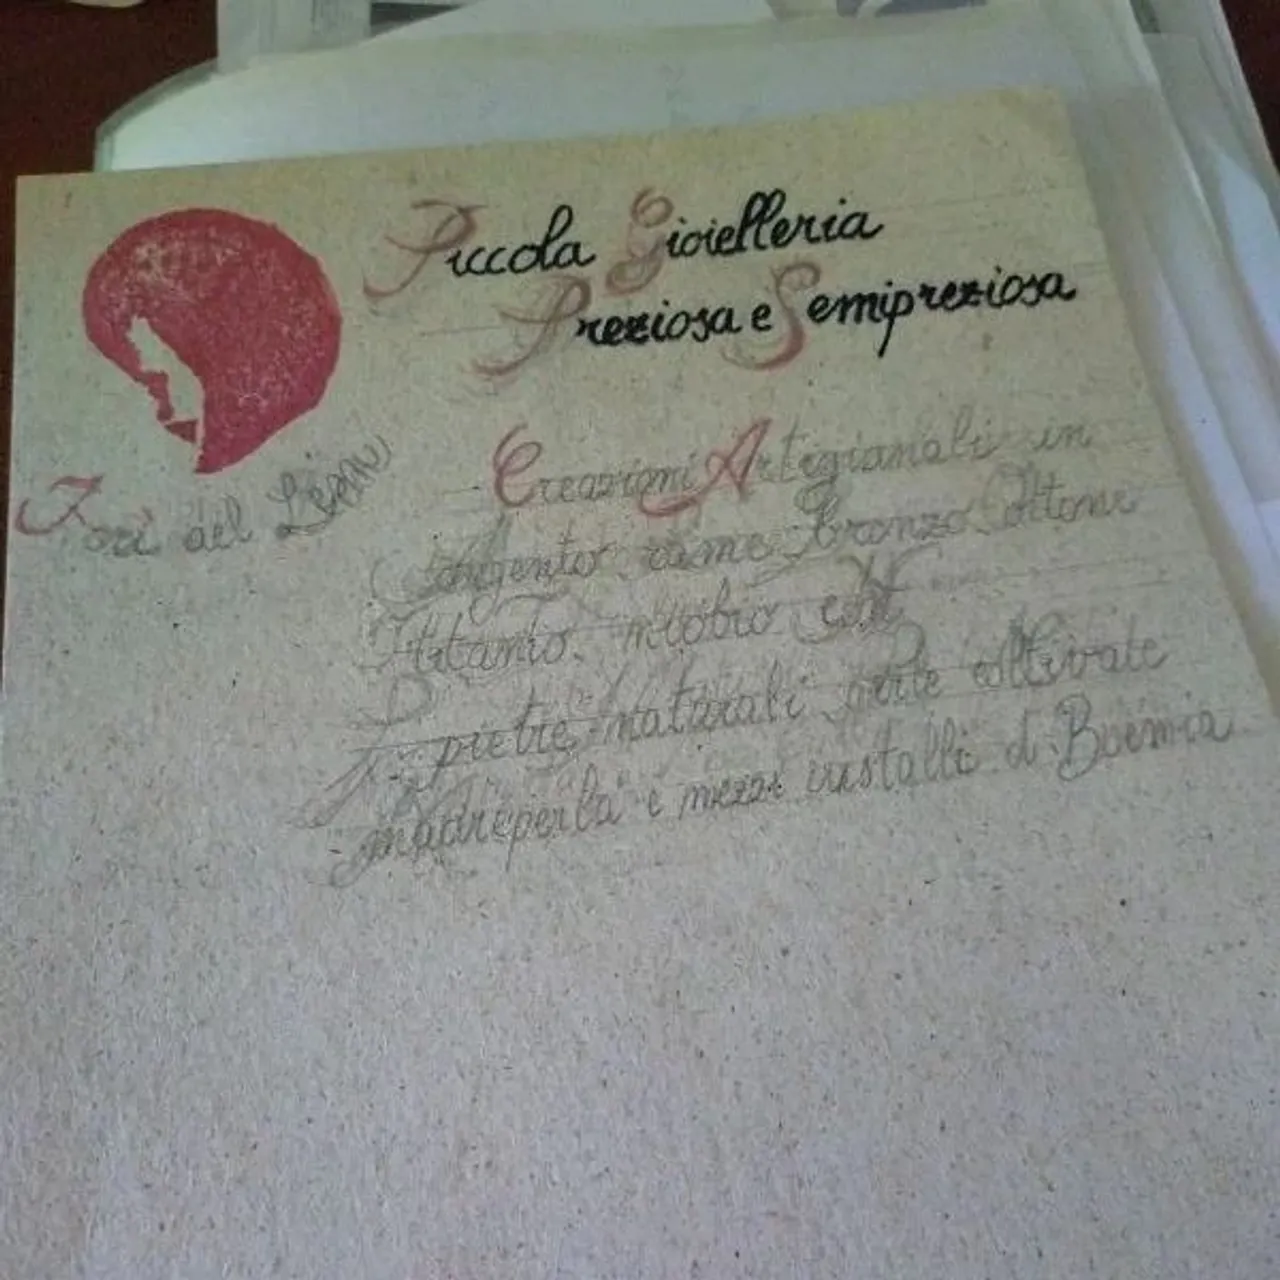 Piccola Gioielleria
Preziosa e Semipreziosa
Creazioni Artigianali in
Argento rame bronzo Ottone
Titanio niobio
pietre naturali perle coltivate
madreperla e mezzi cristalli di Boemia
Fori del